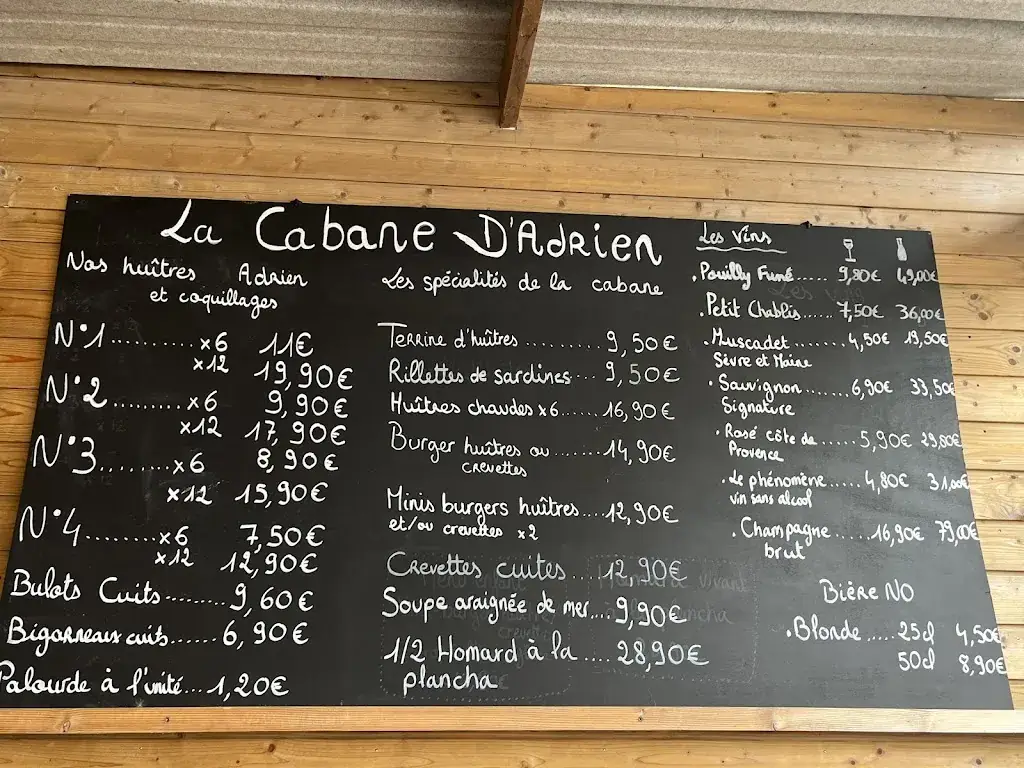 La Cabane D'Adrien
Nos huîtres Adrien
et coquillages
N°1.......... x6 11€
x12 19,90€
N°2......... x6 9,90€
x12 17,90€
N°3........ x6 8,90€
x12 15,90€
N°4........ x6 7,50€
x12 12,90€
Bulots Cuits........ 9,60€
Bigorneaux cuits...... 6,90€
Palourde à l'unité... 1,20€
Les spécialités de la cabane
Terrine d'huîtres .......... 9,50€
Rillettes de sardines... 9,50€
Huîtres chaudes x6...... 16,90€
Burger huîtres ou ....... 14,90€
crevettes
Minis burgers huîtres.... 12,90€
et/ou crevettes x2
Crevettes cuites... 12,90€
Soupe araignée de mer... 9,90€
1/2 Homard à la .... 28,90€
plancha
Les Vins
.Pouilly Fumé...... 9,80€ 49,00€
.Petit Chablis...... 7,50€ 36,00€
.Muscadet ........ 4,50€ 19,50€
Sèvre et Maine
.Sauvignon....... 6,90€ 33,50€
Signature
.Rosé côte de ...... 5,90€ 29,80€
Provence
.Le phénomène ..... 4,80€ 31,00€
vin sans alcool
.Champagne ..... 16,90€ 79,00€
brut
Bière NO
.Blonde ..... 25cl 4,50€
50cl 8,90€